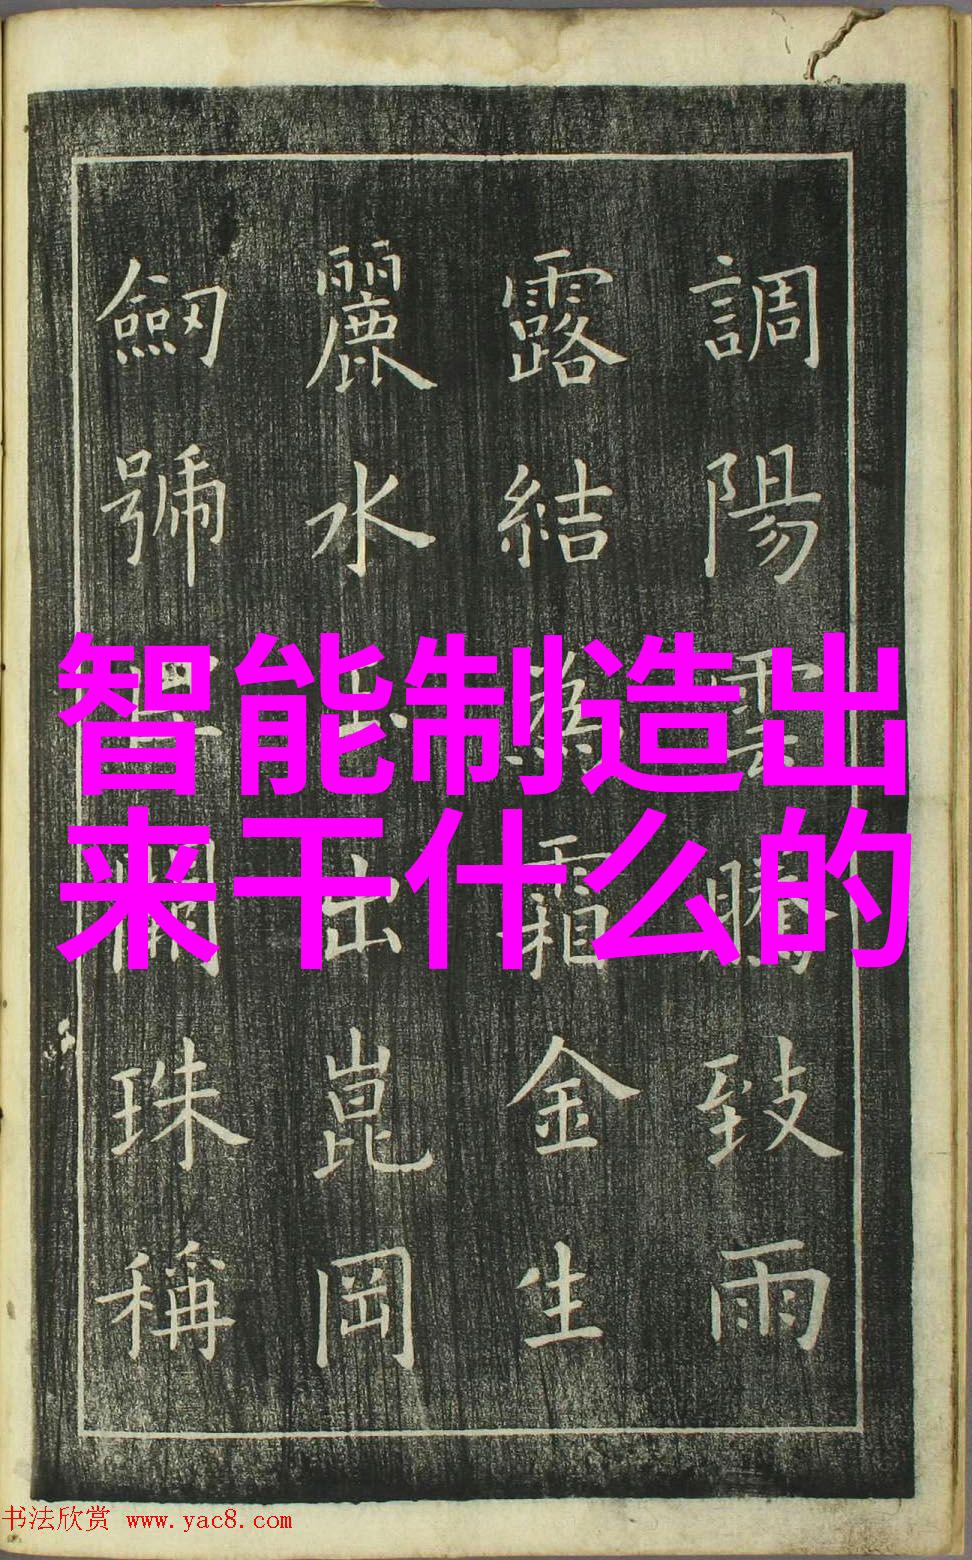 調陽雲騰致雨
露結為霜金生
麗水出崑岡
劒號珠稱
智能制造出
来干什么的
书法欣赏 www.yac8.com